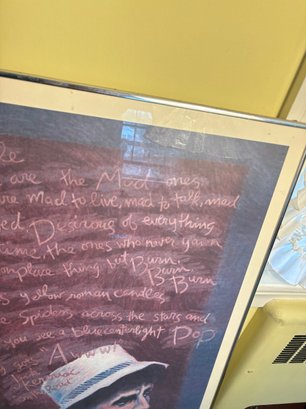 le
are the Mad ones
re Mad to live, mad to talk, mad
ed Desirous of everything
time, the ones who never yawn
onplace thing, but Burn,
Burn
Burn
yellow roman candles
Spiders across the stars and
you see a blue centerlight Pop
Awww!
Kerouac